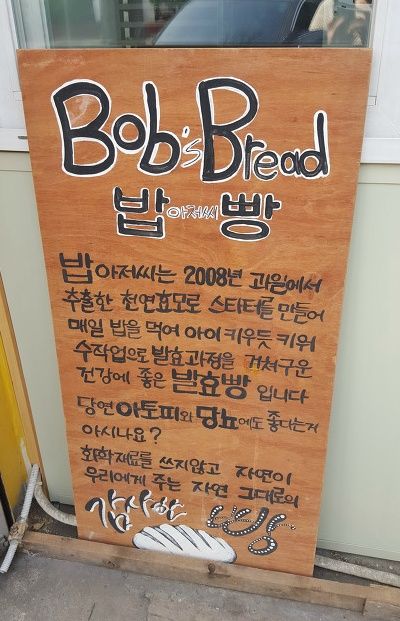 Bob's Bread
밥아저씨빵
밥아저씨는 2008년 과일에서
추출한 천연효모로 스타터를 만들어
매일 밥을 먹여 아이 키우듯 키워
수작업으로 발효과정을 거쳐구운
건강에 좋은 발효빵 입니다
당연 아토피와 당뇨에도 좋다는거
아시나요?
화학재료를 쓰지않고 자연이
우리에게 주는 자연 그대로의
감사한 빵